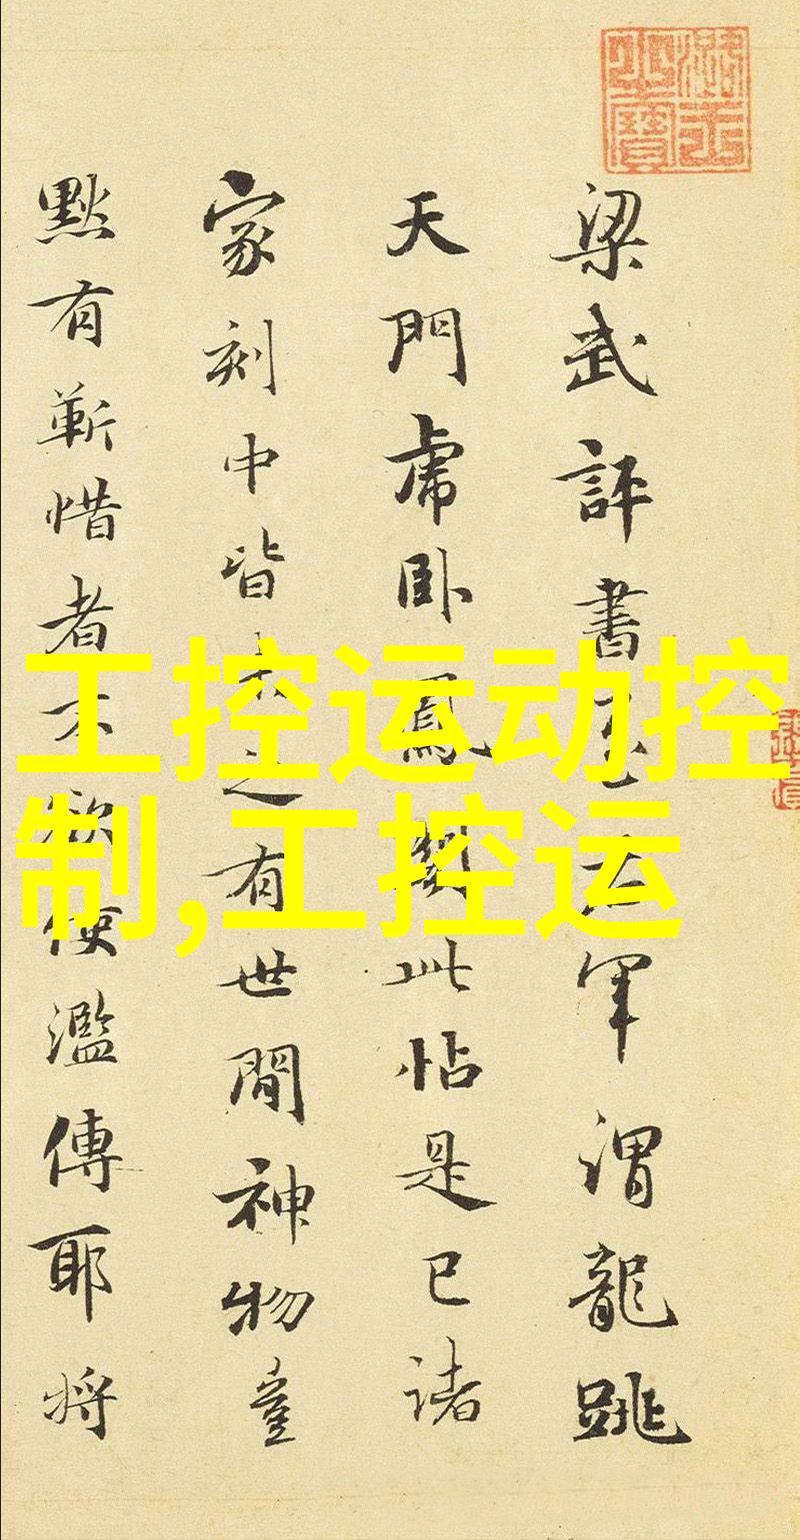 梁武評書至右軍謂龍跳
天門虎卧鳳閣此帖是已諸
家刻中皆未之有世間神物豈
黙有靳惜者不欲使濫傳耶將
工控运动控
制,工控运